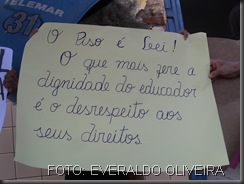 TELEMAR
31
O Piso é Lei!
O que mais fere a
dignidade do educador
é o desrespeito aos
seus direitos.
FOTO: EVERALDO OLIVEIRA